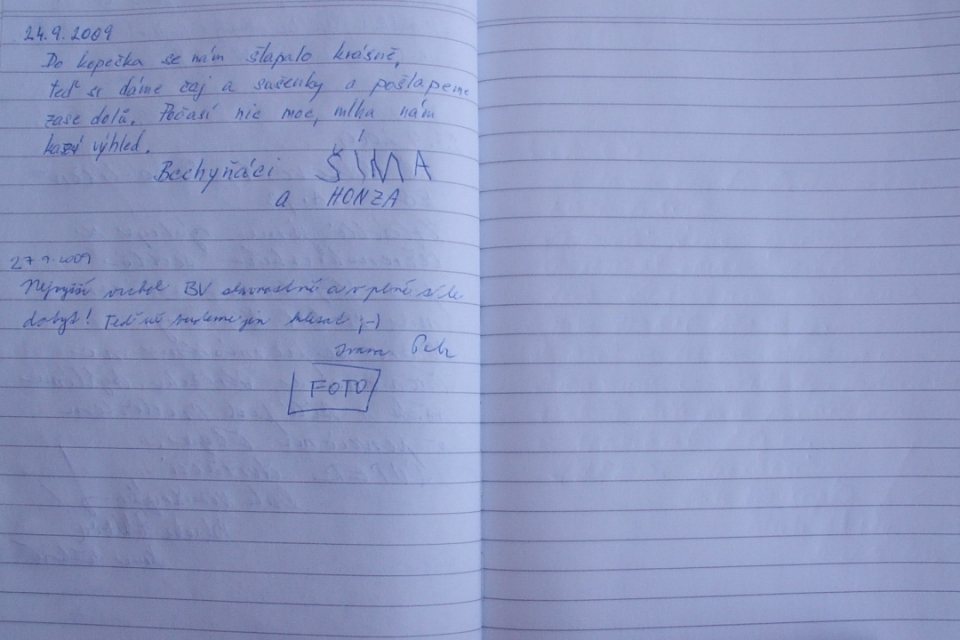 24.9.2009
Do kopečka se nám šlapalo krásně,
teď si dáme čaj a sušenky a pošlapeme
zase dolů. Počasí nic moc, mlha nám
kazí výhled.
Bechyňáci ŠÍMA
a HONZA
27.9.2009
Nejvyšší vrchol BV v plné síle
dobyt! Teď už budeme jen klesat ;-)
Petr
FOTO